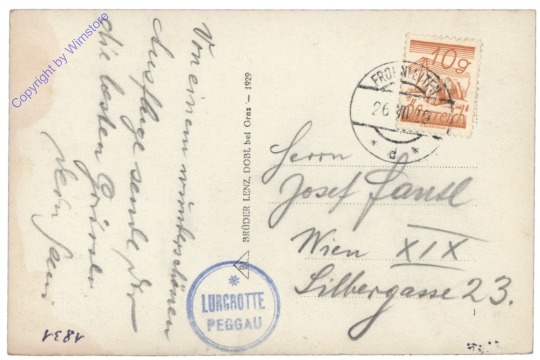 Copyright by Wimstore
Von einem wunderschönen
Ausfluge sende Dir
die besten Grüsse
Dein
1831
BRÜDER LENZ, DOBL bei Graz – 1929
LURGROTTE
PEGGAU
10g
FROHNLEITEN
26
* d *
Herrn
Josef
Wien XIX
Silbergasse 23.